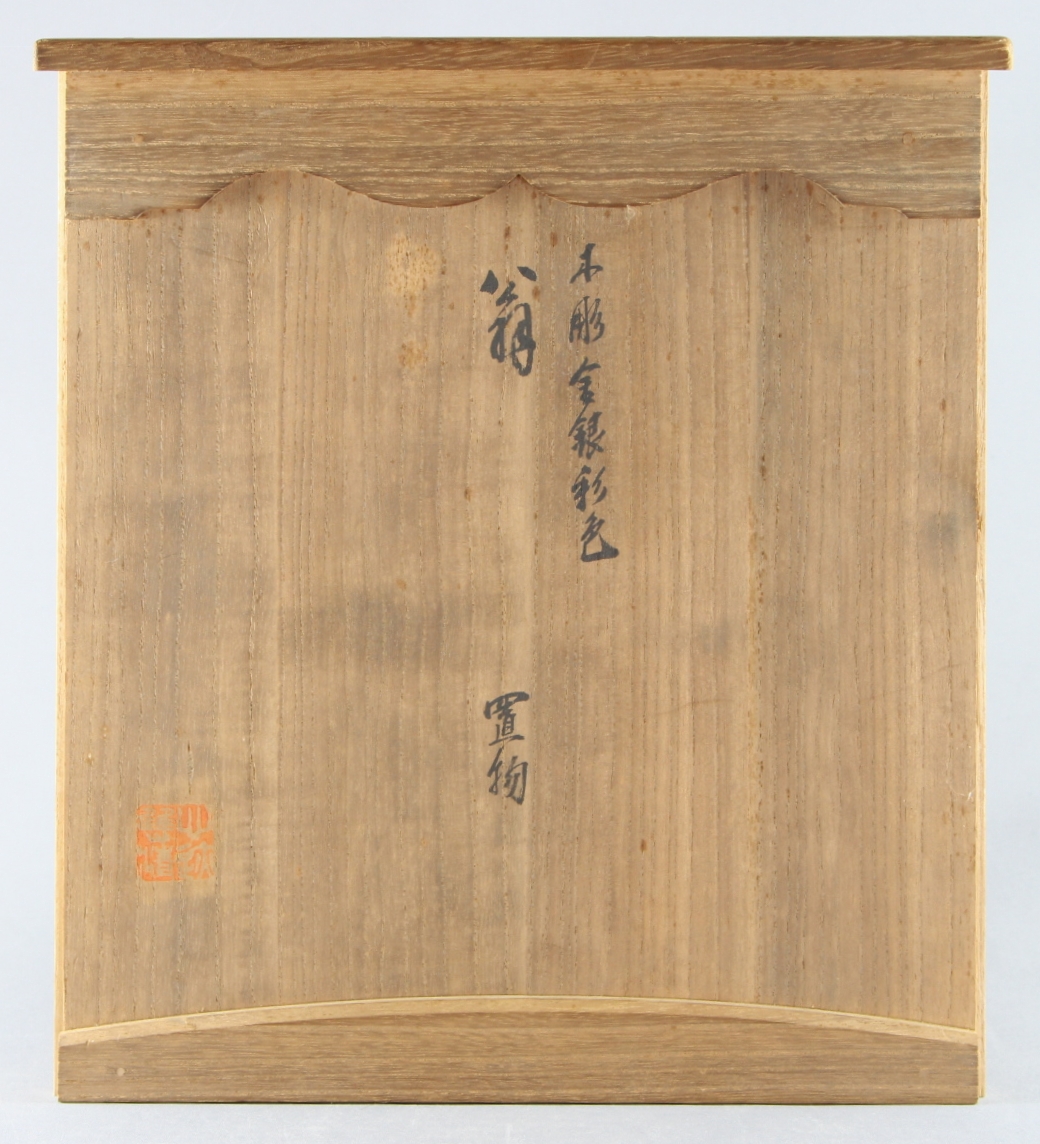 木彫金銀彩色
翁 置物